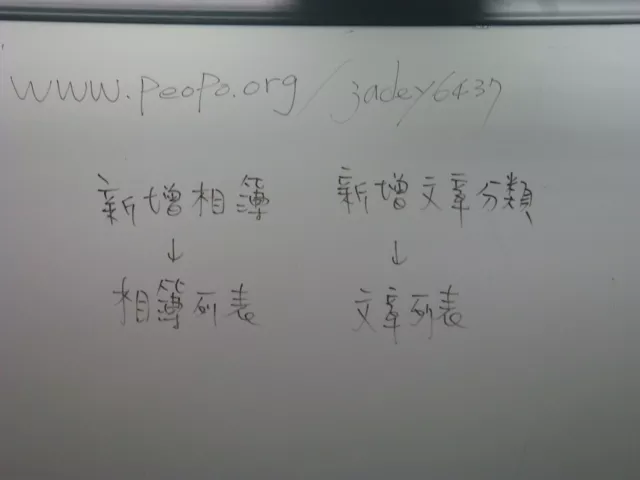 www.peopo.org/jadey6437
新增相簿 新增文章分類
↓ ↓
相簿列表 文章列表